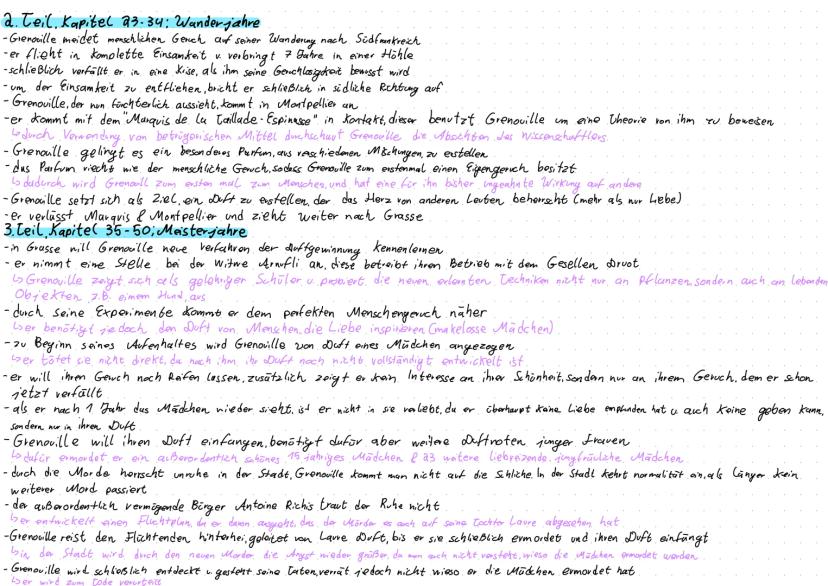 2. Teil, Kapitel 23-34: Wanderjahre
- Grenouille meidet menschlichen Geruch auf seiner Wanderung nach Südfrankreich
- er flieht in komplette Einsamkeit u. verbringt 7 Jahre in einer Höhle
- schließlich verfällt er in eine Krise, als ihm seine Geruchlosigkeit bewusst wird
- um der Einsamkeit zu entfliehen, bricht er schließlich in südliche Richtung auf
- Grenouille, der nun fürchterlich aussieht, kommt in Montpellier an
- er kommt mit dem "Marquis de La Taillade-Espinasse" in Kontakt, dieser benutzt Grenouille um eine Theorie von ihm zu beweisen
↳ durch Verwendung von betrügerischen Mittel durchschaut Grenouille die Absichten des Wissenschaftlers
- Grenouille gelingt es ein besonderes Parfum, aus verschiedenen Mischungen, zu erstellen
- das Parfum riecht wie der menschliche Geruch, sodass Grenouille zum erstenmal einen Eigengeruch besitzt
↳ dadurch wird Grenouill zum ersten mal zum Menschen, und hat eine für ihn bisher ungeahnte Wirkung auf andere
- Grenouille setzt sich als Ziel, ein Duft zu erstellen, der das Herz von anderen Leuten beherrscht (mehr als nur Liebe)
- er verlässt Marquis & Montpellier und zieht weiter nach Grasse
3. Teil, Kapitel 35-50: Meisterjahre
- in Grasse will Grenouille neue Verfahren der Duftgewinnung kennenlernen
- er nimmt eine Stelle bei der Witwe Arnulfi an, diese betreibt ihren Betrieb mit dem Gesellen Druot
↳ Grenouille zeigt sich als gelehriger Schüler u. probiert die neuen erlernten Techniken nicht nur an Pflanzen, sondern auch an lebenden
Objekten z.B. einem Hund, aus
- durch seine Experimente kommt er dem perfekten Menschengeruch näher
↳ er benötigt jedoch den Duft von Menschen, die Liebe inspirieren (makelose Mädchen)
- zu Beginn seines Aufenhaltes wird Grenouille von Duft eines Mädchen angezogen
↳ er tötet sie nicht direkt, da nach ihm ihr Duft noch nicht vollständig entwickelt ist
- er will ihren Geruch noch Reifen lassen, zusätzlich zeigt er kein Interesse an ihrer Schönheit, sondern nur an ihrem Geruch, dem er schon
jetzt verfällt
- als er nach 1 Jahr das Mädchen wieder sieht, ist er nicht in sie verliebt, da er überhaupt keine Liebe empfunden hat u. auch keine geben kann,
sondern nur in ihren Duft
- Grenouille will ihren Duft einfangen, benötigt dafür aber weitere Duftnoten junger Frauen
↳ dafür ermordet er ein außerordentlich schönes 15 jähriges Mädchen & 23 weitere liebreizende, jungfräuliche Mädchen
- duch die Morde herrscht unruhe in der Stadt, Grenouille kommt man nicht auf die Schliche. In der Stadt kehrt normalität ein, als länger kein
weiterer Mord passiert
- der außerordentlich vermögende Bürger Antoine Richis traut der Ruhe nicht
↳ er entwickelt einen Fluchtplan, da er davon ausgeht, das der Mörder es auch auf seine Tochter Laure abgesehen hat
- Grenouille reist den Flüchtenden hinterher, geleitet von Laure Duft, bis er sie schließlich ermordet und ihren Duft einfängt
↳ in der Stadt wird durch den neuen Morder die Angst wieder größer, da man auch nicht versteht, wieso die Mädchen ermordet werden
- Grenouille wird schließlich entdeckt u. gesteht seine Taten, verrät jedoch nicht wieso er die Mädchen ermordet hat
↳ er wird zum Tode verurteilt